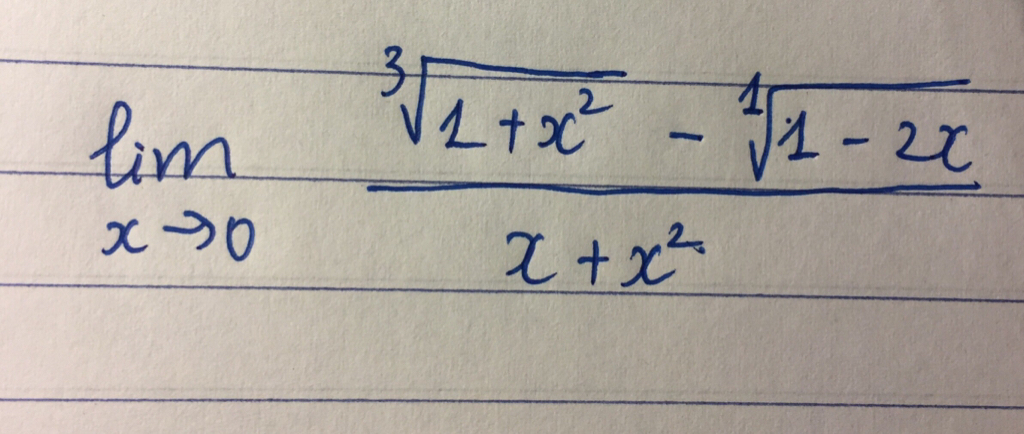 lim x→0 (∛(1 + x²) - ¹√(1 - 2x)) / (x + x²)